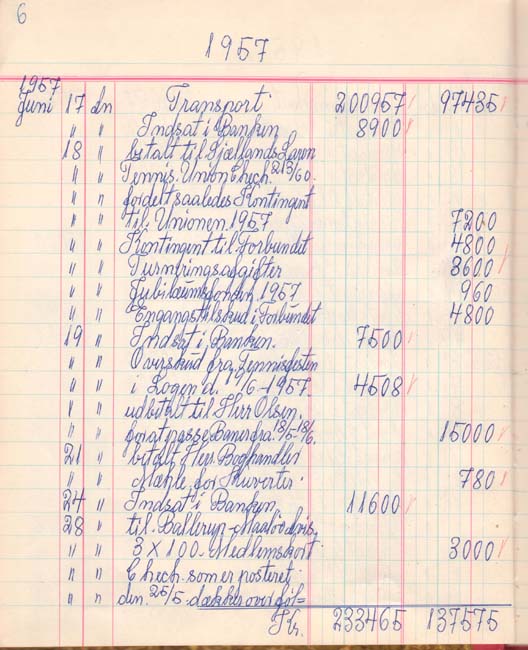 6
1957
1957
Juni 17 dn Transport 200957 97435
" " Indsat i Banken 8900
18 " betalt til Sjællands Lawn
" " Tennis. Union Chech. 213/60.
" " fordelt saaledes Kontingent
" " til. Unionen. 1957 7200
" " Kontingent til Forbundet 4800
" " Turneringsafgifter 3600
" " Jubilæumsfonden. 1957 960
" " Engangstilskud i Forbundet 4800
19 " Indsat i, Banken. 7500
" " Overskud fra Tennisfesten
" " i Logen d. 1/6-1957. 4508
" " udbetalt til Herr Olsen.
" " for at passe Baner fra. 18/5-18/6. 15000
21 " betalt, Herr Boghandler
" " Mæhle for Kuverter. 780
24 " Indsat i Banken 11600
28 " til Ballerup-Maaløv Avis.
" " 3 x 100. Medlemskort 3000
" " Chech. som er posteret
" " den. 25/5. dækker over føl=
Kr. 233465 137575